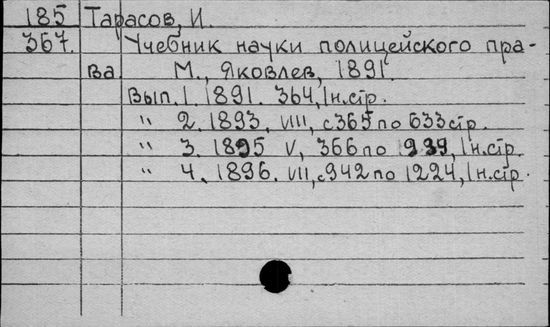 185 Тарасов, И.
367. Учебник науки полицейского пра-
ва М., Яковлев, 1891.
Вып. 1. 1891. 364, 1 н.стр.
" 2. 1893. VIII, с 365 по 633 стр.
" 3. 1895 V, 366 по 939, 1 н.стр.
" 4. 1896. VII, с 942 по 1224, 1 н.стр.